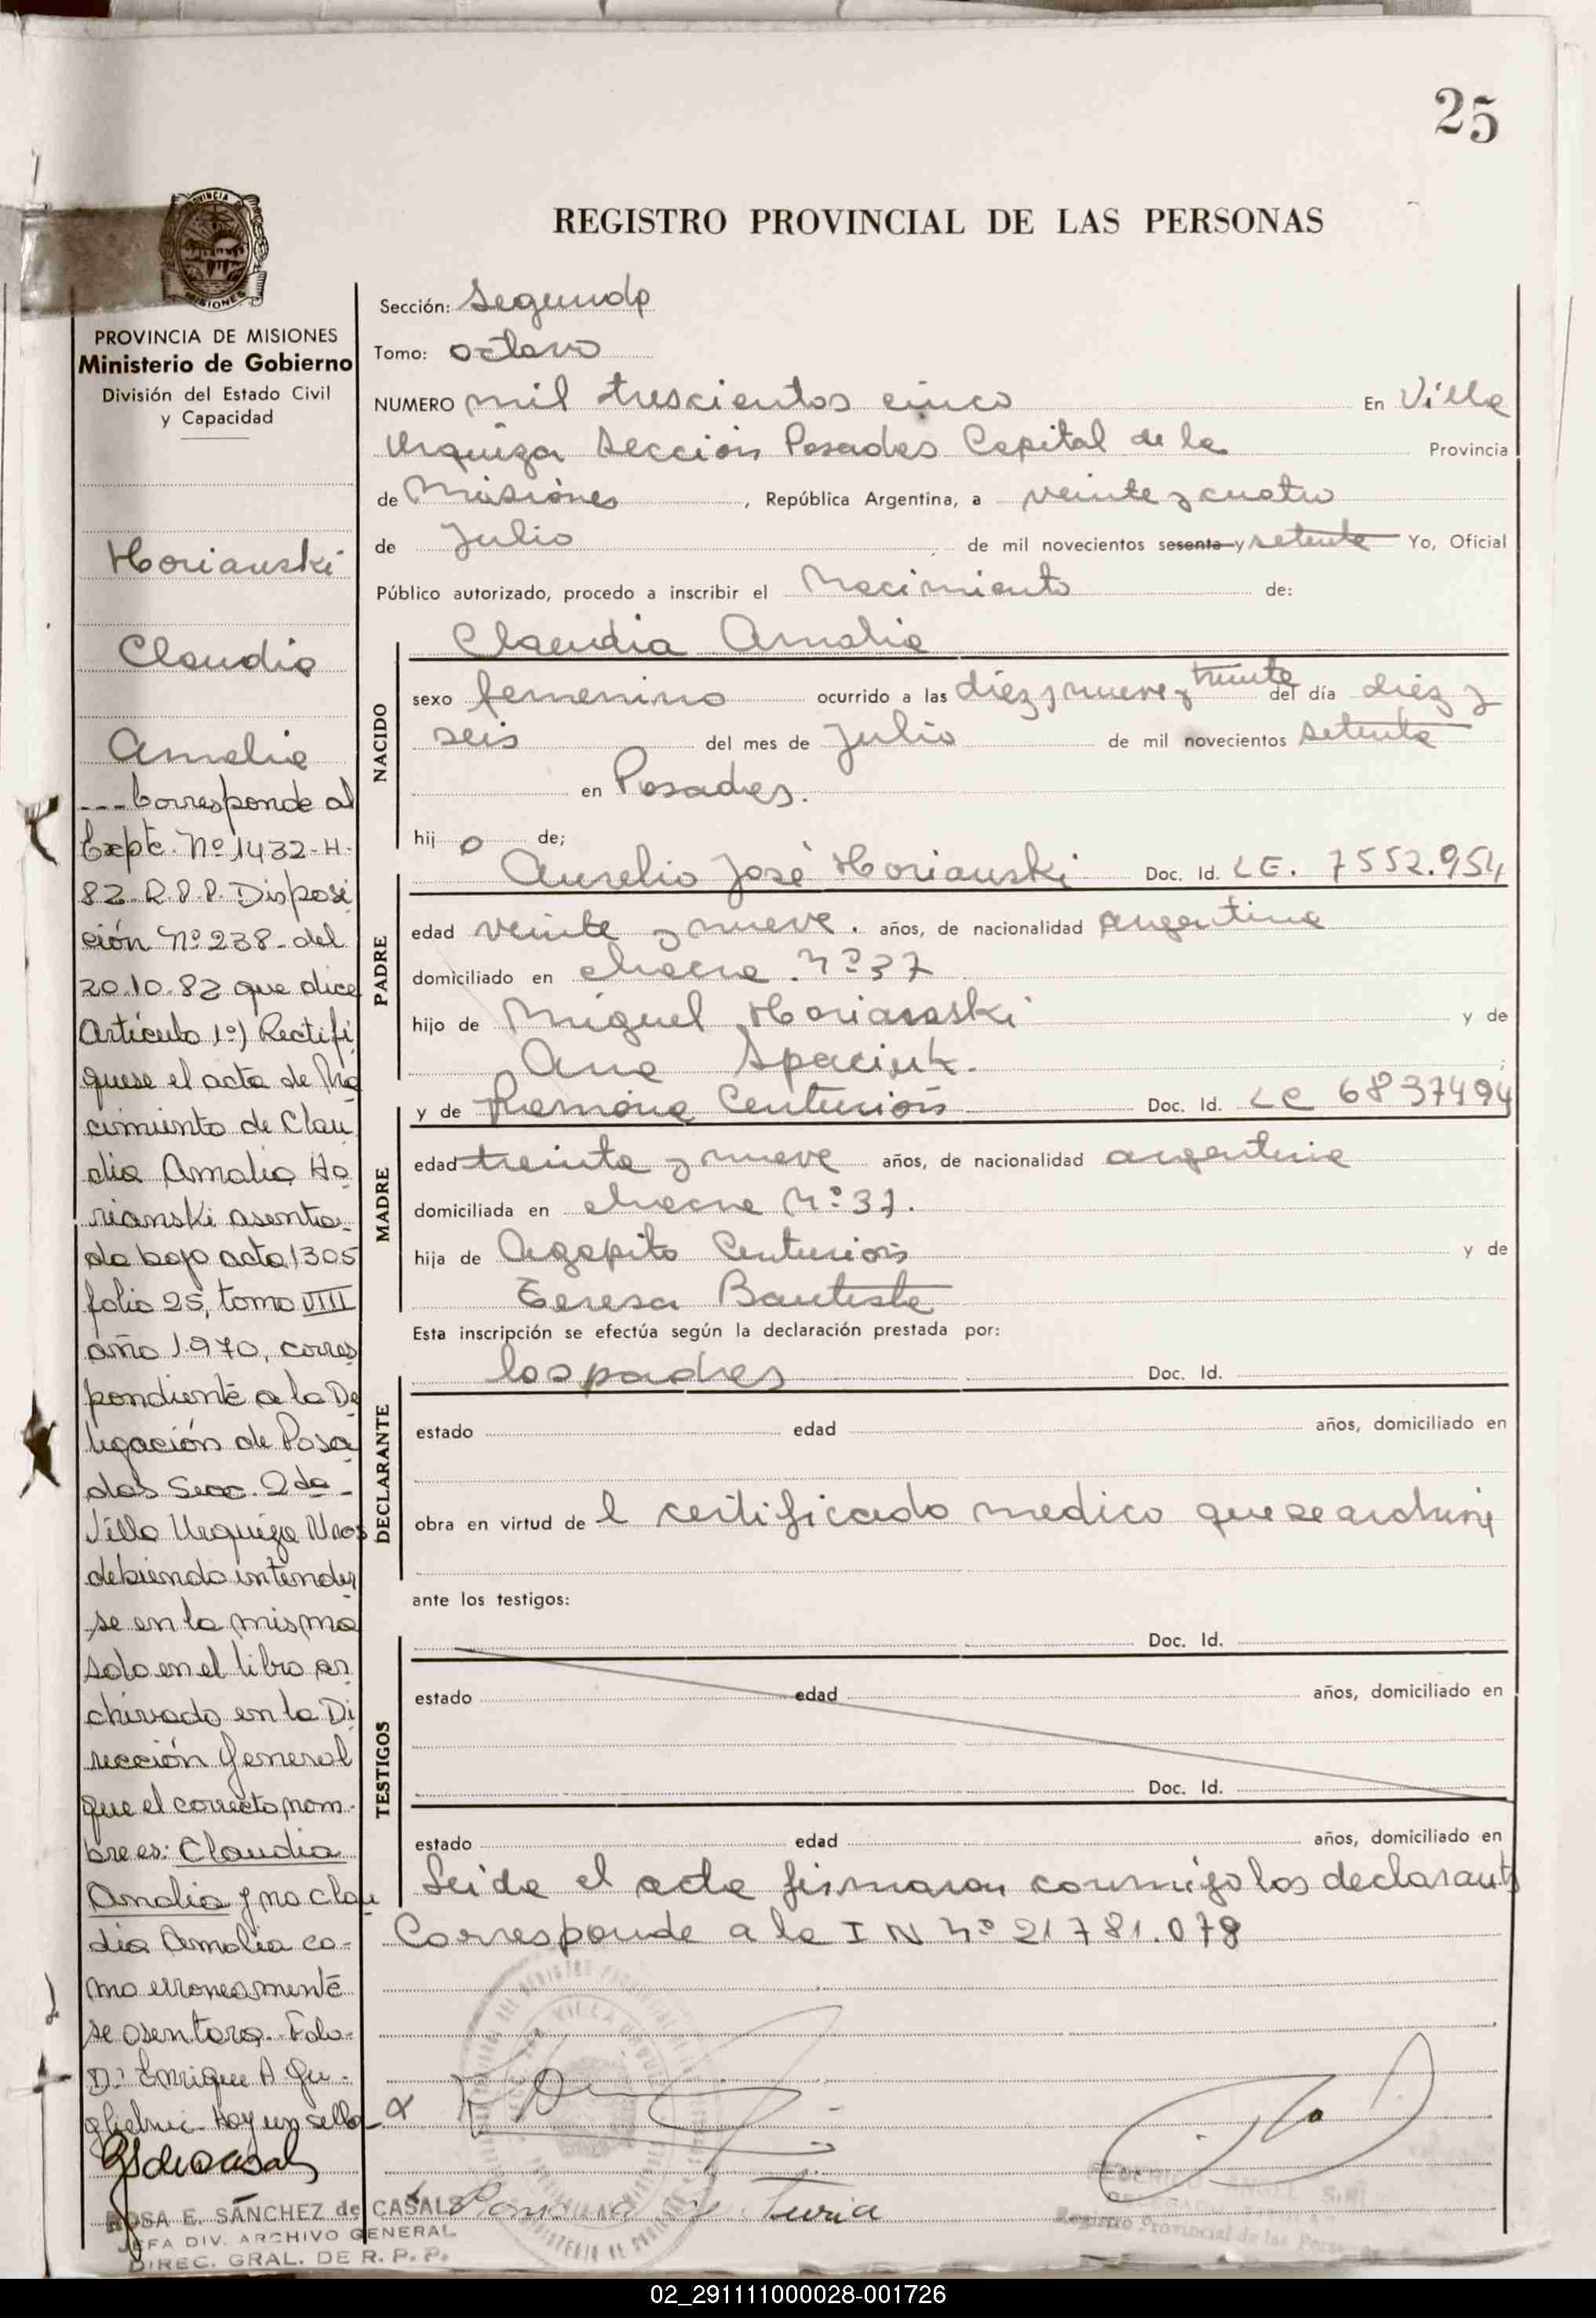 25
REGISTRO PROVINCIAL DE LAS PERSONAS
PROVINCIA DE MISIONES
Ministerio de Gobierno
División del Estado Civil
y Capacidad
Horianski
Claudia
Amalia
--- Corresponde al
Expte. Nº 1432-H-
82-R.P.P. Disposi
ción Nº 238- del
20.10.82 que dice
Artículo 1º) Rectifi
quese el acta de Na
cimiento de Clau
dia Amalia Ho
rianski asenta-
da bajo acta 1305
folio 25, tomo VIII
año 1.970, corres
pondiente a la De
legación de Posa
das Secc. 2da-
Villa Urquiza Mnes
debiendo entender
se en la misma
solo en el libro ar
chivado en la Di
rección General
que el correcto nom-
bre es: Claudia
Amalia y no clau
dia Amalia co-
mo erroneamente
se asentara. Fdo-
Dr. Enrique A. Gu-
glielmi- Hay un sello-
ROSA E. SÁNCHEZ de CASALS
JEFA DIV. ARCHIVO GENERAL
DIREC. GRAL. DE R. P. P.
Sección: Segunda
Tomo: octavo
NUMERO mil trescientos cinco En Villa
Urquiza Sección Posadas Capital de la Provincia
de Misiones, República Argentina, a veinte y cuatro
de Julio de mil novecientos sesenta y setenta Yo, Oficial
Público autorizado, procedo a inscribir el Nacimiento de:
NACIDO
Claudia Amalia
sexo femenino ocurrido a las diez y nueve y treinta del día diez y
seis del mes de Julio de mil novecientos setenta
en Posadas.
hija de;
PADRE
Aurelio José Horianski Doc. Id. LE. 7552.954
edad veinte y nueve. años, de nacionalidad argentina
domiciliado en chacra Nº 37
hijo de Miguel Horianski y de
Ana Spaciuk.
MADRE
y de Ramona Centurión Doc. Id. LC 6837494
edad treinta y nueve años, de nacionalidad argentina
domiciliada en chacra Nº 37.
hija de Agapito Centurión y de
Teresa Bautista
Esta inscripción se efectúa según la declaración prestada por:
DECLARANTE
los padres Doc. Id.
estado edad años, domiciliado en
obra en virtud de l certificado medico que se archiva
ante los testigos:
TESTIGOS
Doc. Id.
estado edad años, domiciliado en
Doc. Id.
estado edad años, domiciliado en
Leida el acta firmaron conmigo los declarants
Corresponde a la I N Nº 21781.078
Registro Provincial de las Personas
02_291111000028-001726